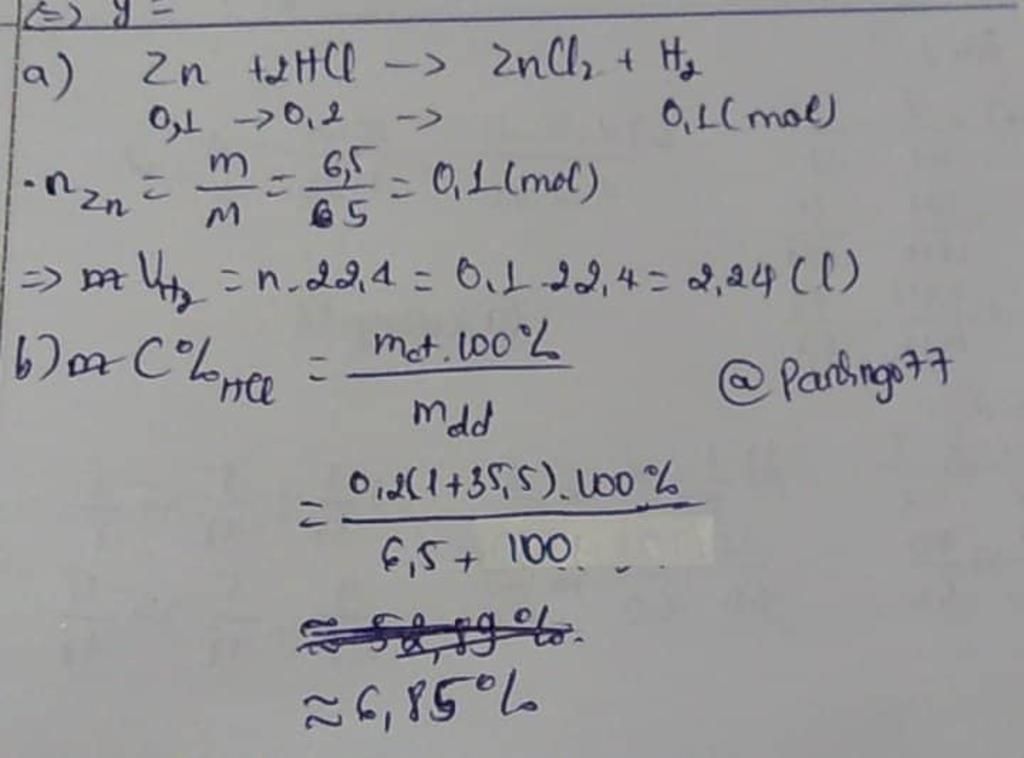 (=) y =
a) Zn + 2HCl --> ZnCl₂ + H₂
0,1 -> 0,2 -> 0,1 (mol)
. n Zn = m/M = 6,5/65 = 0,1 (mol)
=> V H₂ = n. 22,4 = 0,1 . 22,4 = 2,24 (l)
b) C% HCl = mct . 100% / mdd
@ Pardingo77
= 0,2(1+35,5).100% / 6,5 + 100
≈ 6,85%